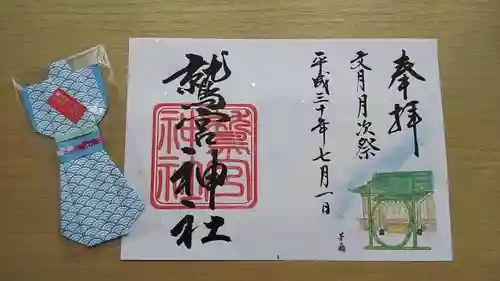 奉拝
文月月次祭
平成三十年七月一日
鷲宮神社
鷲宮神社